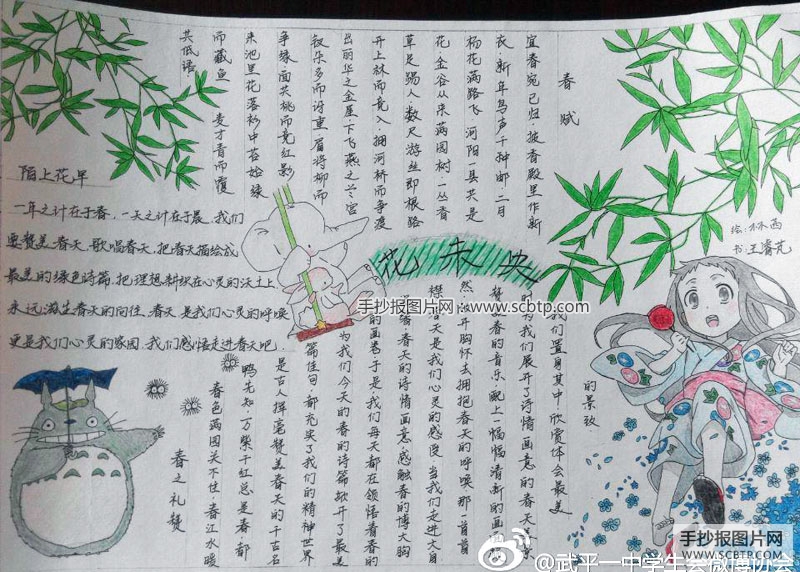 春赋
宜春宛已归,披香殿里作新
衣,新年鸟声千种啭,二月
杨花满路飞,河阳一县共是
花,金谷从来满园树,一丛香
草足踢人,数尺游丝即横路
开上林而竞入,拥河桥而争渡
出丽华之金屋,下飞燕之兰宫
钗朵多而讶重,眉将柳而
争绿,面共桃而竞红,影
来池里,花落衫中,苔始绿
而藏鱼,麦才青而覆
共低语.
陌上花早
一年之计在于春,一天之计在于晨,我们
要赞美春天,歌唱春天,把春天描绘成
最美的绿色诗篇,把理想耕织在心灵的沃土上
永远滋生春天的向往,春天是我们心灵的呼唤
更是我们心灵的家园,我们感悟走进春天吧.
花未央
绘:林茜
书:王睿芃
春之礼赞
春色满园关不住,春江水暖
鸭先知,万紫千红总是春,都
是古人挥毫赞美春天的千古名
篇佳句,都充实了我们的精神世界
为我们今天的春的诗篇掀开了最美
的画卷,于是我们每天都在领悟着春的
春天的诗情画意,感触春的博大胸
襟,春天是我们心灵的感度,当我们走进大自
然,敞开胸怀去拥抱春天的呼唤,那一首首
春的音乐,配上一幅幅清新的画
为我们展开了诗情画意的春天美景
我们置身其中,欣赏体会最美
的景致.
手抄报图片网 www.scbtp.com
手抄报图片网
WWW.SCBTR.COM
@武平一中学生会微博协会